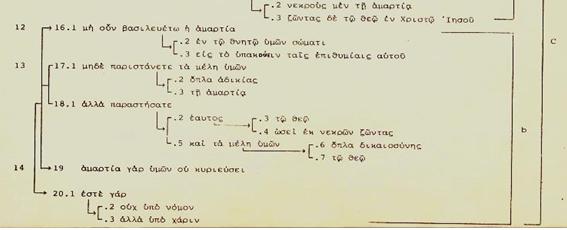 .2 νεκροὺς μὲν τῇ ἁμαρτίᾳ
.3 ζῶντας δὲ τῷ θεῷ ἐν Χριστῷ Ἰησοῦ
12 16.1 μὴ οὖν βασιλευέτω ἡ ἁμαρτία
.2 ἐν τῷ θνητῷ ὑμῶν σώματι
.3 εἰς τὸ ὑπακούειν ταῖς ἐπιθυμίαις αὐτοῦ
13 17.1 μηδὲ παριστάνετε τὰ μέλη ὑμῶν
.2 ὅπλα ἀδικίας
.3 τῇ ἁμαρτίᾳ
18.1 ἀλλὰ παραστήσατε
.2 ἑαυτος .3 τῷ θεῷ
.4 ὡσεὶ ἐκ νεκρῶν ζῶντας
.5 καὶ τὰ μέλη ὑμῶν .6 ὅπλα δικαιοσύνης
.7 τῷ θεῷ
14 19 ἁμαρτία γὰρ ὑμῶν οὐ κυριεύσει
20.1 ἐστὲ γάρ
.2 οὐχ ὑπὸ νόμον
.3 ἀλλὰ ὑπὸ χάριν
b
c